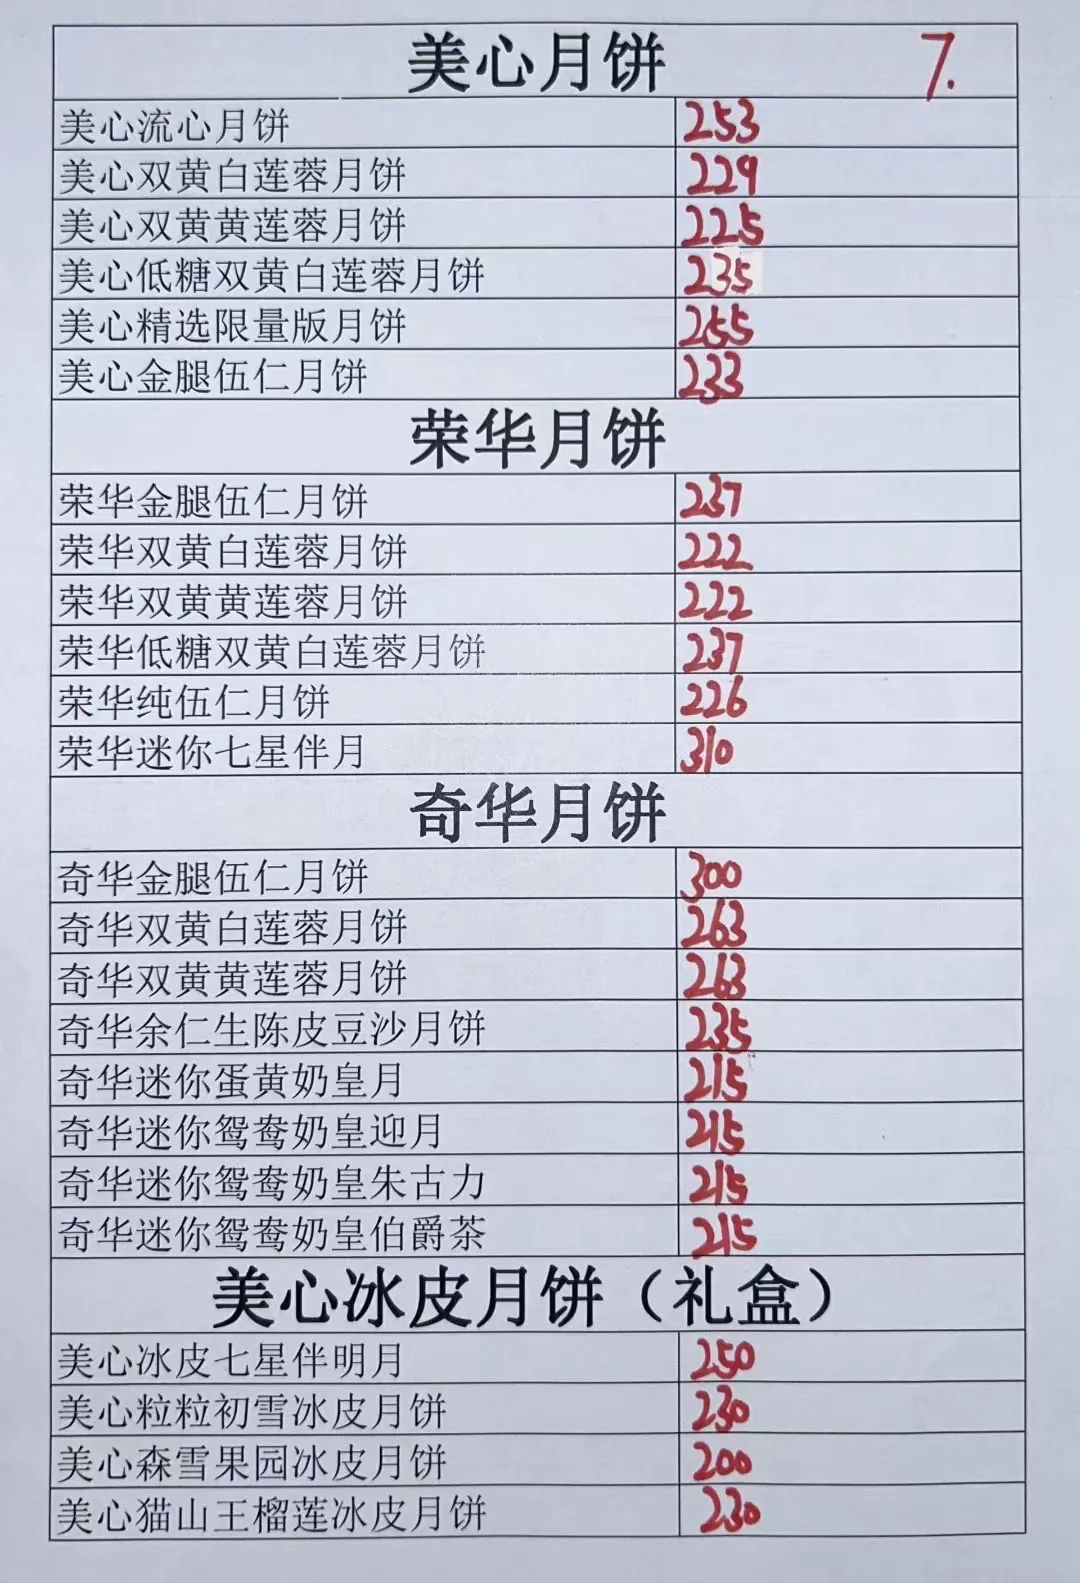 美心月饼 7.
美心流心月饼 253
美心双黄白莲蓉月饼 229
美心双黄黄莲蓉月饼 225
美心低糖双黄白莲蓉月饼 235
美心精选限量版月饼 255
美心金腿伍仁月饼 233
荣华月饼
荣华金腿伍仁月饼 237
荣华双黄白莲蓉月饼 222
荣华双黄黄莲蓉月饼 222
荣华低糖双黄白莲蓉月饼 237
荣华纯伍仁月饼 226
荣华迷你七星伴月 310
奇华月饼
奇华金腿伍仁月饼 300
奇华双黄白莲蓉月饼 263
奇华双黄黄莲蓉月饼 263
奇华余仁生陈皮豆沙月饼 235
奇华迷你蛋黄奶皇月 215
奇华迷你鸳鸯奶皇迎月 215
奇华迷你鸳鸯奶皇朱古力 215
奇华迷你鸳鸯奶皇伯爵茶 215
美心冰皮月饼（礼盒）
美心冰皮七星伴明月 250
美心粒粒初雪冰皮月饼 230
美心森雪果园冰皮月饼 200
美心猫山王榴莲冰皮月饼 230